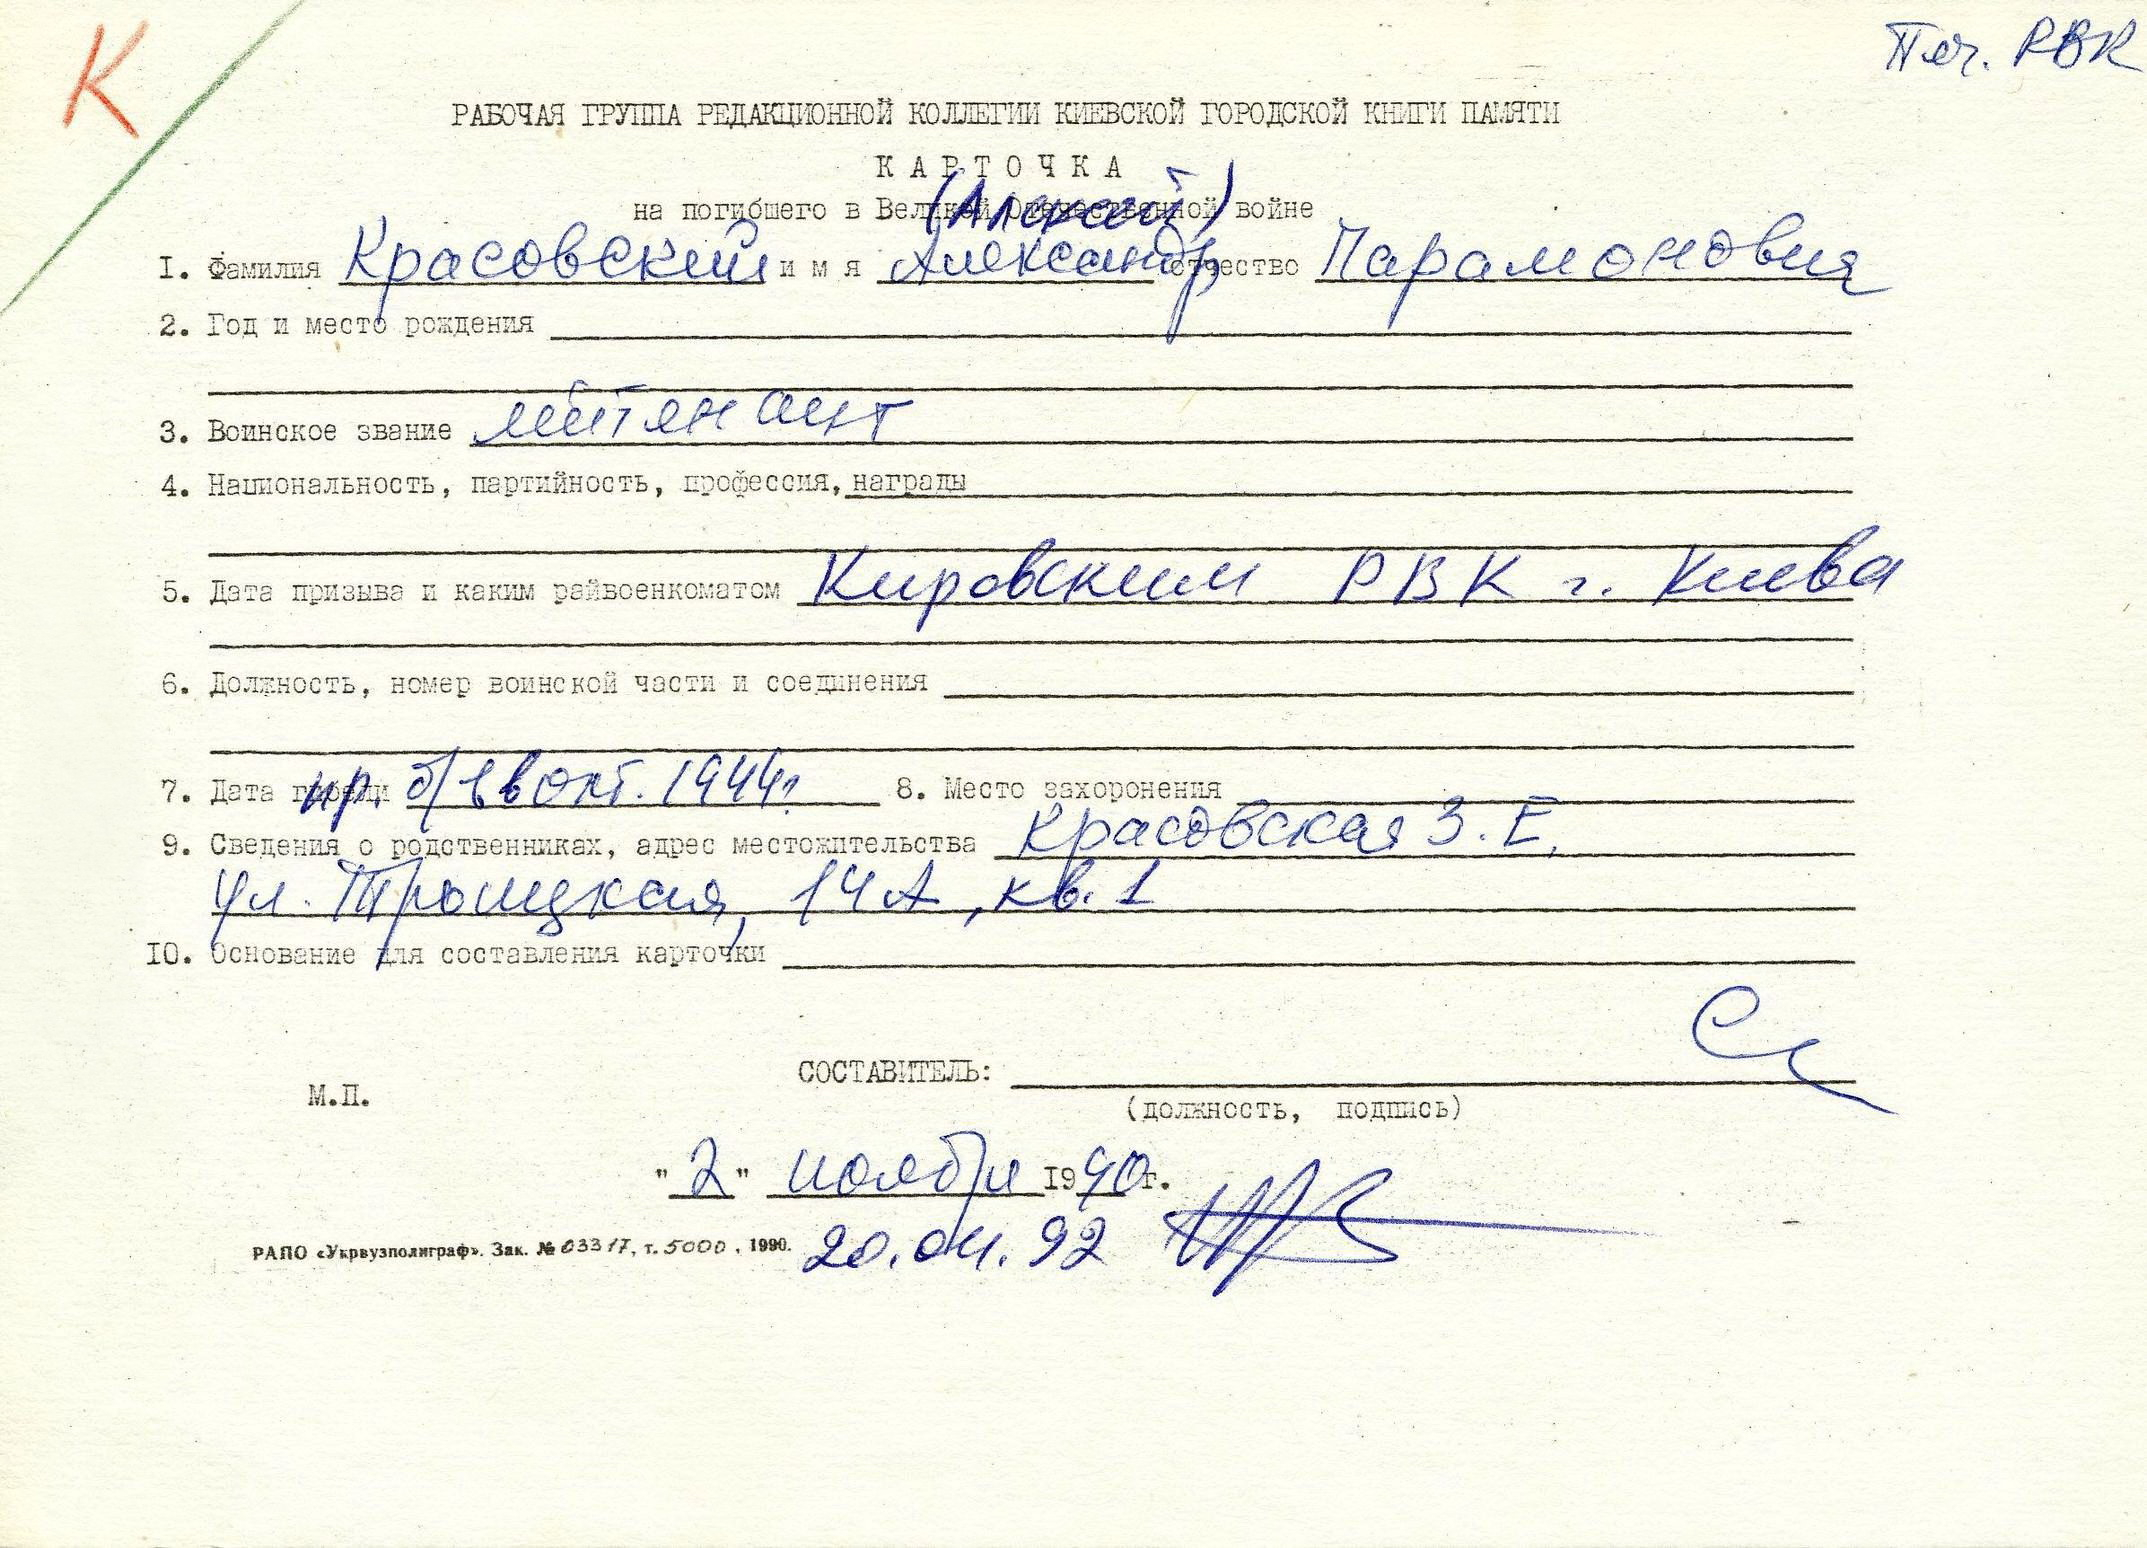 К
Печ. РВК
РАБОЧАЯ ГРУППА РЕДАКЦИОННОЙ КОЛЛЕГИИ КИЕВСКОЙ ГОРОДСКОЙ КНИГИ ПАМЯТИ
КАРТОЧКА
на погибшего в Великой Отечественной войне
(Алексей)
I. Фамилия Красовский имя Александр отчество Парамонович
2. Год и место рождения
3. Воинское звание лейтенант
4. Национальность, партийность, профессия, награды
5. Дата призыва и каким райвоенкоматом Кировским РВК г. Киева
6. Должность, номер воинской части и соединения
7. Дата гибели пр. б/в в окт. 1944г. 8. Место захоронения
9. Сведения о родственниках, адрес местожительства Красовская З. Е.
ул. Троицкая, 14А, кв. 1
IO. Основание для составления карточки
СОСТАВИТЕЛЬ:
М.П.
(должность, подпись)
"2" ноября 1990г.
РАПО «Укрвузполиграф». Зак. № 03317, т. 5000, 1990.
20.04.92